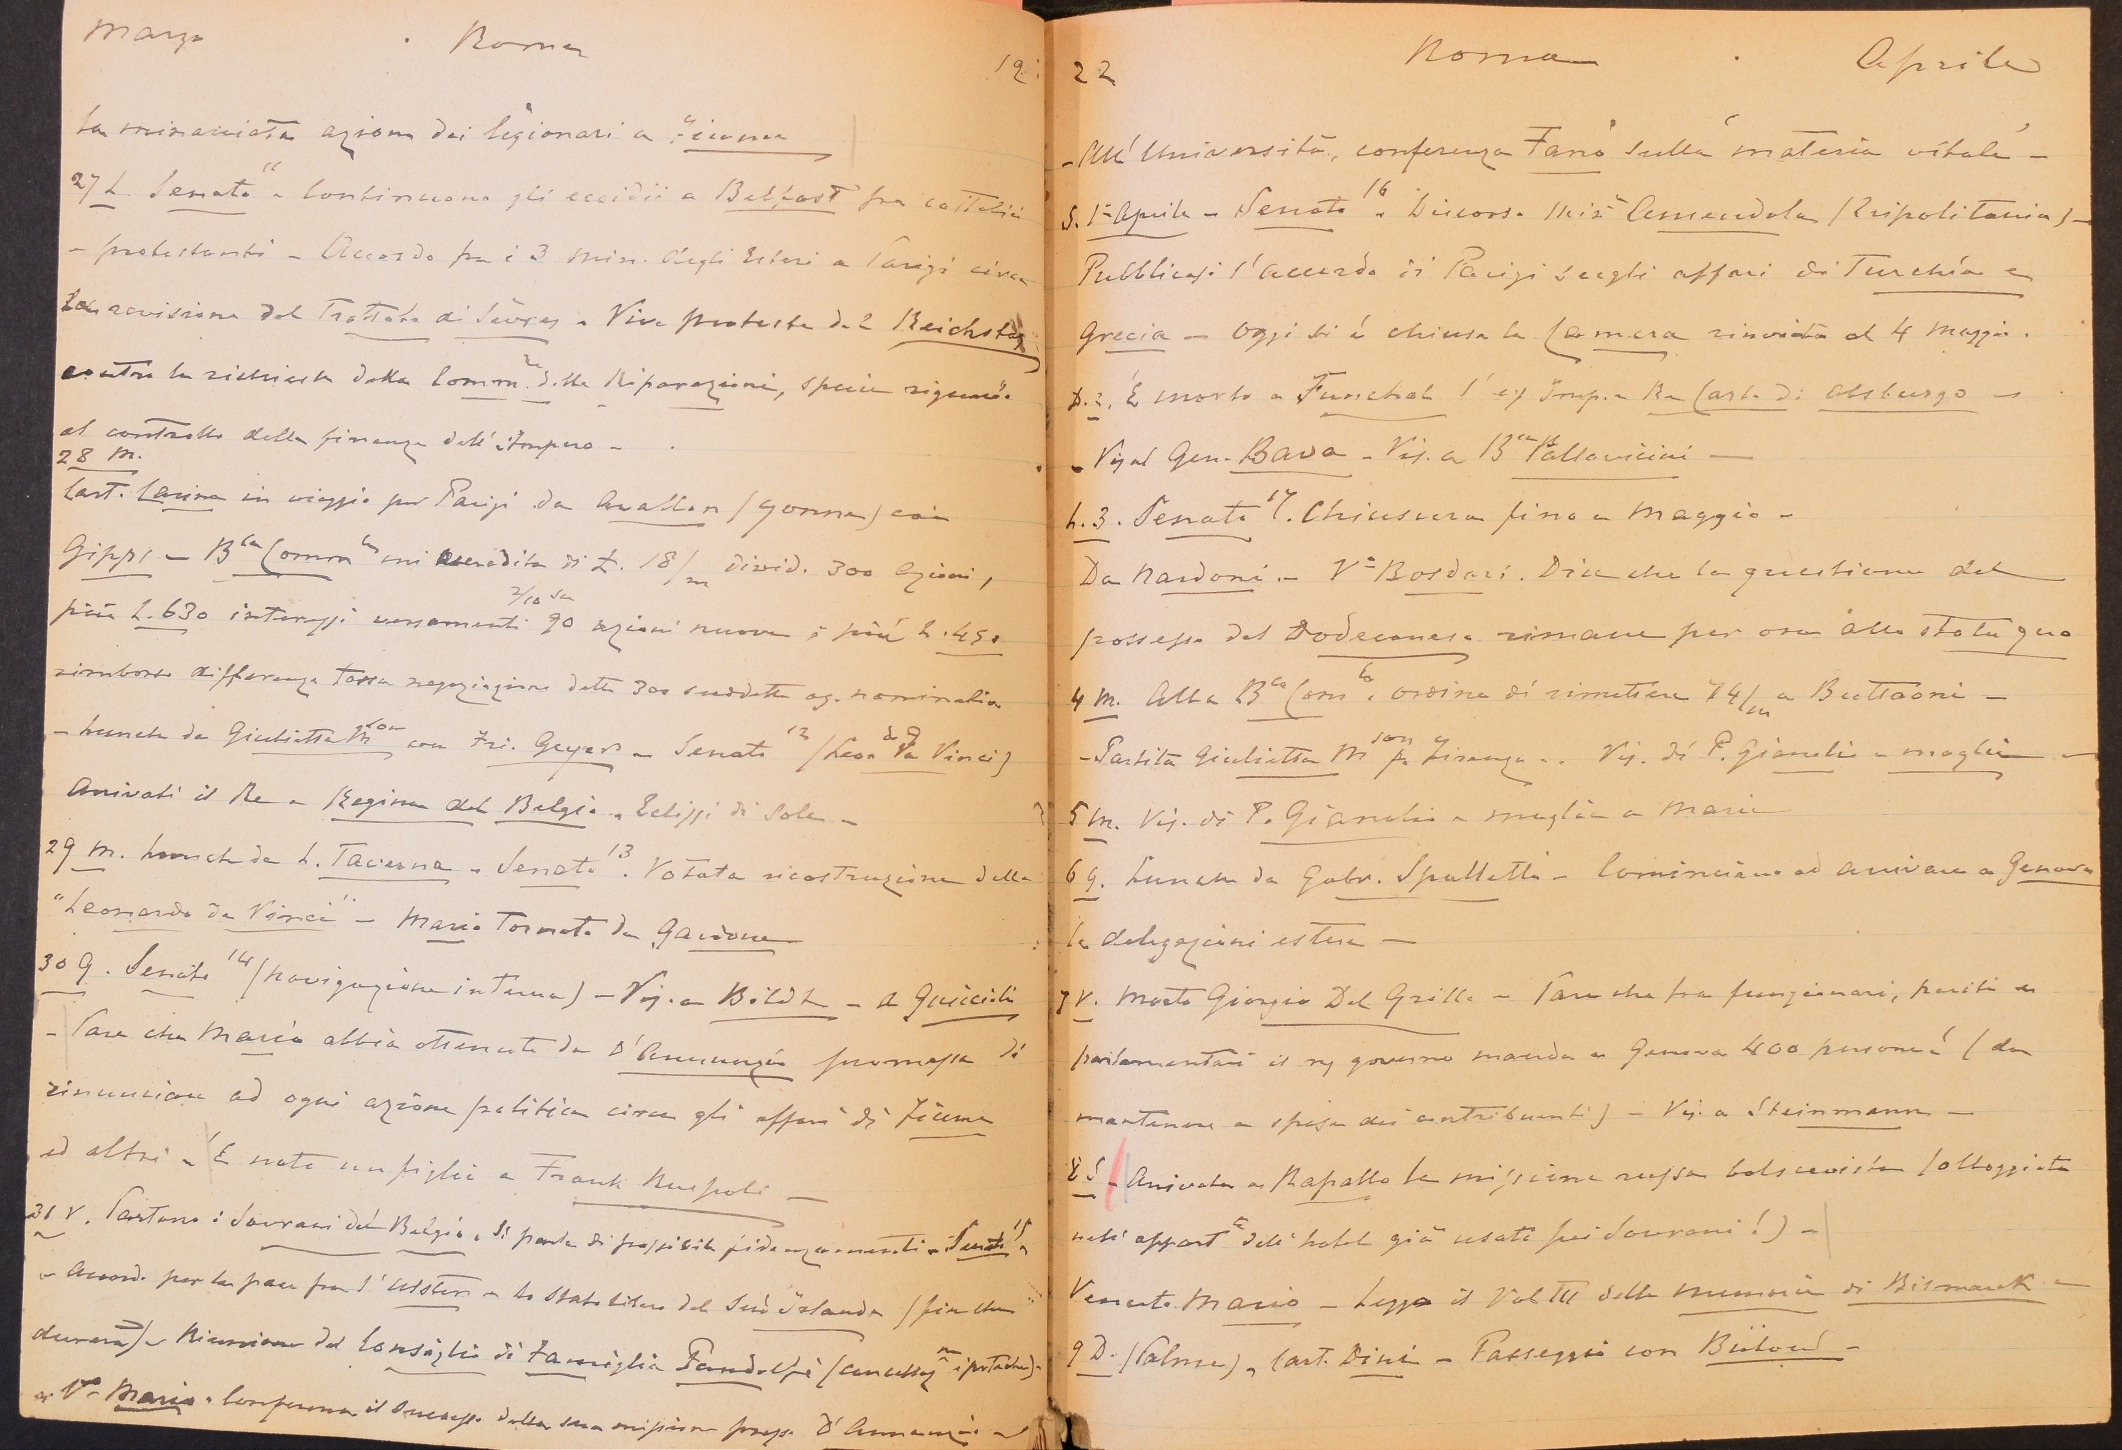 Marzo . Roma 19
la minacciata azione dei legionari a Fiume
27 L. Senato 11 - Continuano gli eccidii a Belfast fra cattolici
- protestanti - Accordo fra i 3 min. degli Esteri a Parigi circa
la revisione del Trattato di Sèvres - Viva protesta del Reichstag
contro la richiesta della Comm.ne delle Riparazioni, specie riguardo
al controllo della finanza dell'Impero -
28 M.
Cart. Lavina in viaggio per Parigi da Avallon (Yonne) con
Gipps - B.ca Comm.le mi accredita di L. 18/m divid. 300 azioni,
più L. 630 interessi versamenti 7/10 su 90 azioni nuove; più L. 450
rimborso differenza tassa negoziazione dette 300 suddette az. nominative
- Lunch da Giulietta M.son con Fri. Geyer - Senato 12 (Leon.do da Vinci)
Arrivati il Re e Regina del Belgio - Eclissi di Sole -
29 M. Lunch da L. Taverna - Senato 13. Votata ricostruzione della
"Leonardo da Vinci" - Mario tornato da Gardone
30 G. Senato 14 (navigazione interna) - Vis. a Bildt - a Guiccioli
- Pare che Mario abbia ottenuto da D'Annunzio promessa di
rinunciare ad ogni azione politica circa gli affari di Fiume
ed altri - È nato un figlio a Frank Ruspoli -
31 V. Partono i Sovrani del Belgio, si parla di possibile fidanzamento - Senato 15 -
- Accordo per la pace fra l'Ulster e lo Stato libero del Sud Irlanda (fin che
durerà) - Riunione del Consiglio di Famiglia Pandolfi (cancellaz.ne ipoteche) -
- V.to Mario - Conferma il successo della sua missione presso D'Annunzio -
22 Roma . Aprile
- All'Università, conferenza Fano sulla materia vitale -
S. 1° Aprile - Senato 16. Discorso Min.o Amendola (Tripolitania) -
Pubblicasi l'accordo di Parigi sugli affari di Turchia e
Grecia - Oggi si è chiusa la Camera rinviata al 4 Maggio.
D. 2. È morto a Funchal l'ex Imp. e Re Carlo di Absburgo -
- Vis. al Gen. Bava - Vis. a B. Pallavicini -
L. 3. Senato 17. Chiusura fino a Maggio -
Da Nardoni. - V.o Bosdari. Dice che la questione del
possesso del Dodecaneso rimane per ora allo statu quo
4 M. Alla B.ca Com.le, ordine di rimettere 74/m a Buttaoni -
- Partita Giulietta M.son p. Firenze - Vis. di P. Gianelio e moglie -
5 M. Vis. di P. Gianelio e moglie a Marie
6 G. Lunch da Gabr. Spalletti - Cominciano ad arrivare a Genova
le delegazioni estere -
7 V. Morto Giorgio Del Grillo - Pare che fra funzionari, periti e
parlamentari il ns governo manda a Genova 400 persone! (da
mantenere a spese dei contribuenti) - Vis. a Steinmann -
8 S. - Arrivata a Rapallo la missione russa bolscevista (alloggiata
nell'appart.to dell'hotel già usato pei Sovrani!) -
Venuto Mario - Leggo il Vol. III delle memorie di Bismarck -
9 D. (Palme), Cart. Dini - Passeggio con Bülow -